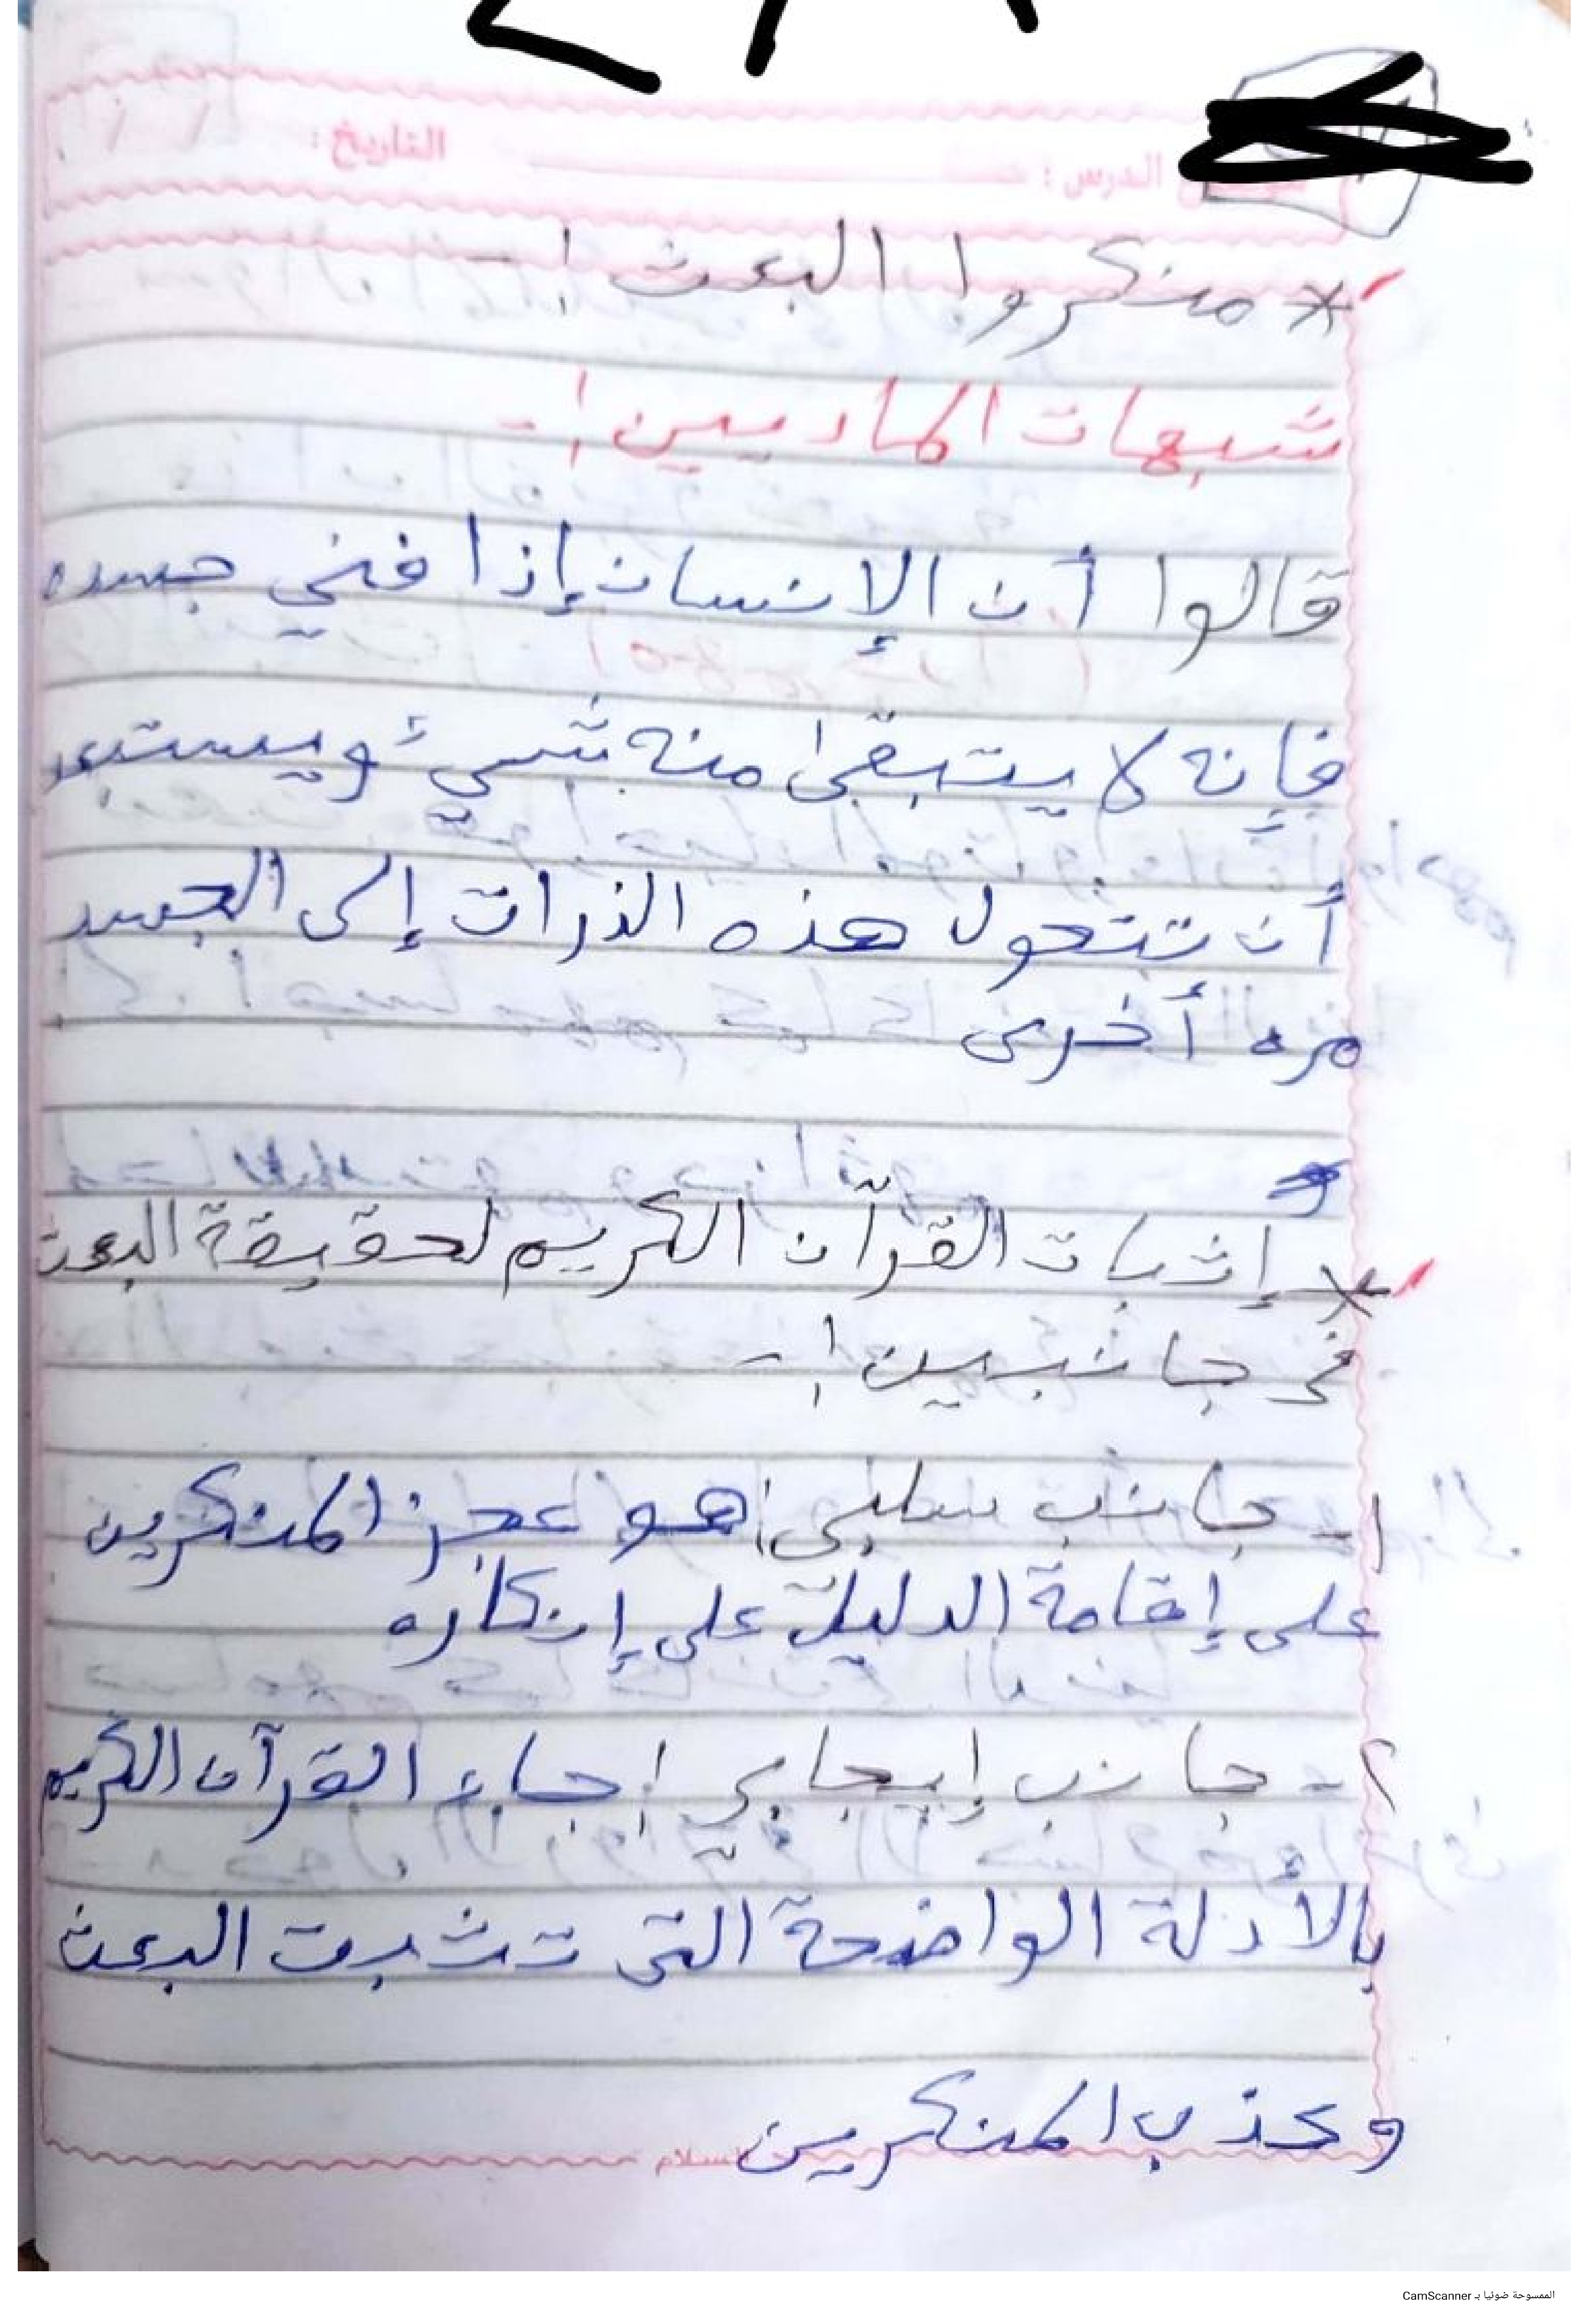 الدرس : التاريخ : / /
* منكروا البعث :-
شبهات الماديين :-
قالوا أن الإنسان إذا فني جسده
فإنه لا يتبقى منه شيء ويستبعد
أن تتحول هذه الذرات إلى الجسد
مره أخرى
* إثبات القرآن الكريم لحقيقة البعث
في جانبين :-
١- جانب سلبي : هو عجز المنكرين
على إقامة الدليل على إنكاره
٢- جانب إيجابي : جاء القرآن الكريم
بالأدلة الواضحة التي تثبت البعث
وكذب المنكرين
الممسوحة ضوئيا بـ CamScanner